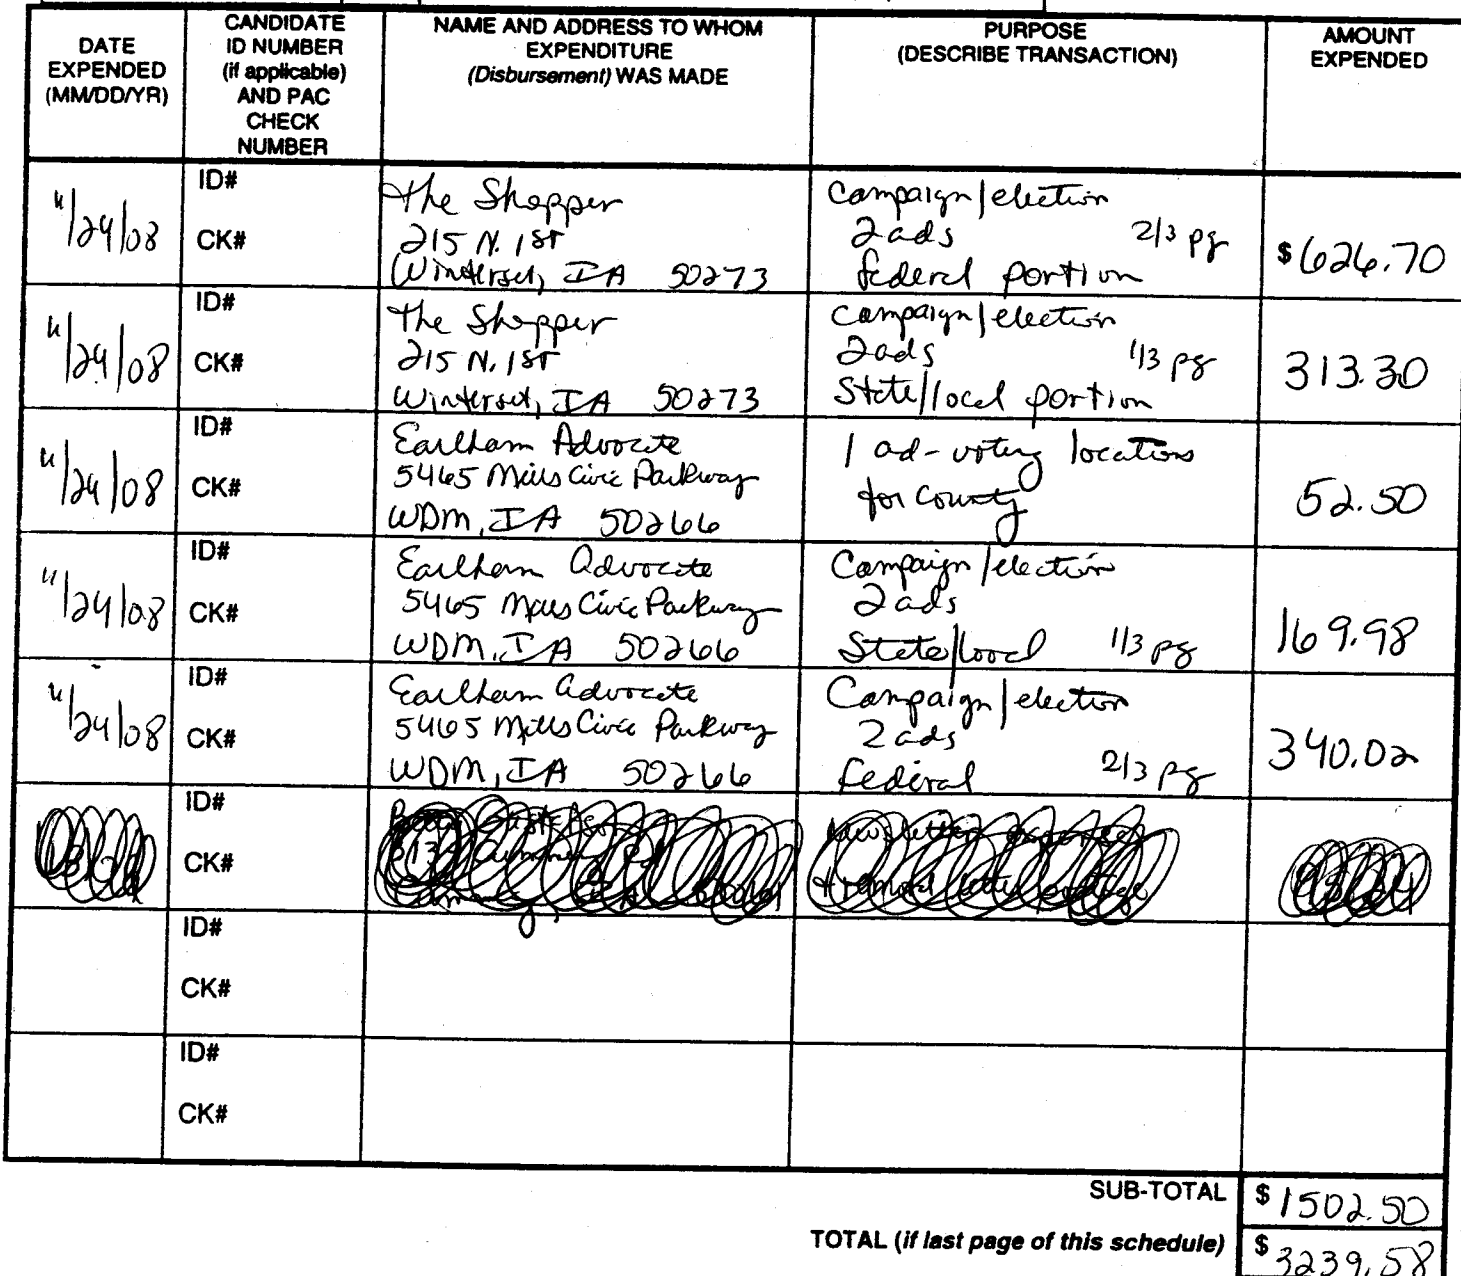 DATE
EXPENDED
(MM/DD/YR)
CANDIDATE
ID NUMBER
(if applicable)
AND PAC
CHECK
NUMBER
NAME AND ADDRESS TO WHOM
EXPENDITURE
(Disbursement) WAS MADE
PURPOSE
(DESCRIBE TRANSACTION)
AMOUNT
EXPENDED
11/24/08
ID#
CK#
The Shopper
215 N. 1st
Winterset, IA 50273
Campaign/election
2 ads 2/3 pg
federal portion
$626.70
11/24/08
ID#
CK#
The Shopper
215 N. 1st
Winterset, IA 50273
Campaign/election
2 ads 1/3 pg
State/local portion
313.30
11/24/08
ID#
CK#
Earlham Advocate
5465 Mills Civic Parkway
WDM, IA 50266
1 ad - voting locations
for county
52.50
11/24/08
ID#
CK#
Earlham Advocate
5465 Mills Civic Parkway
WDM, IA 50266
Campaign/election
2 ads
State/local 1/3 pg
169.98
11/24/08
ID#
CK#
Earlham Advocate
5465 Mills Civic Parkway
WDM, IA 50266
Campaign/election
2 ads
federal 2/3 pg
340.02
ID#
CK#
ID#
CK#
ID#
CK#
SUB-TOTAL $1502.50
TOTAL (if last page of this schedule) $3239.58